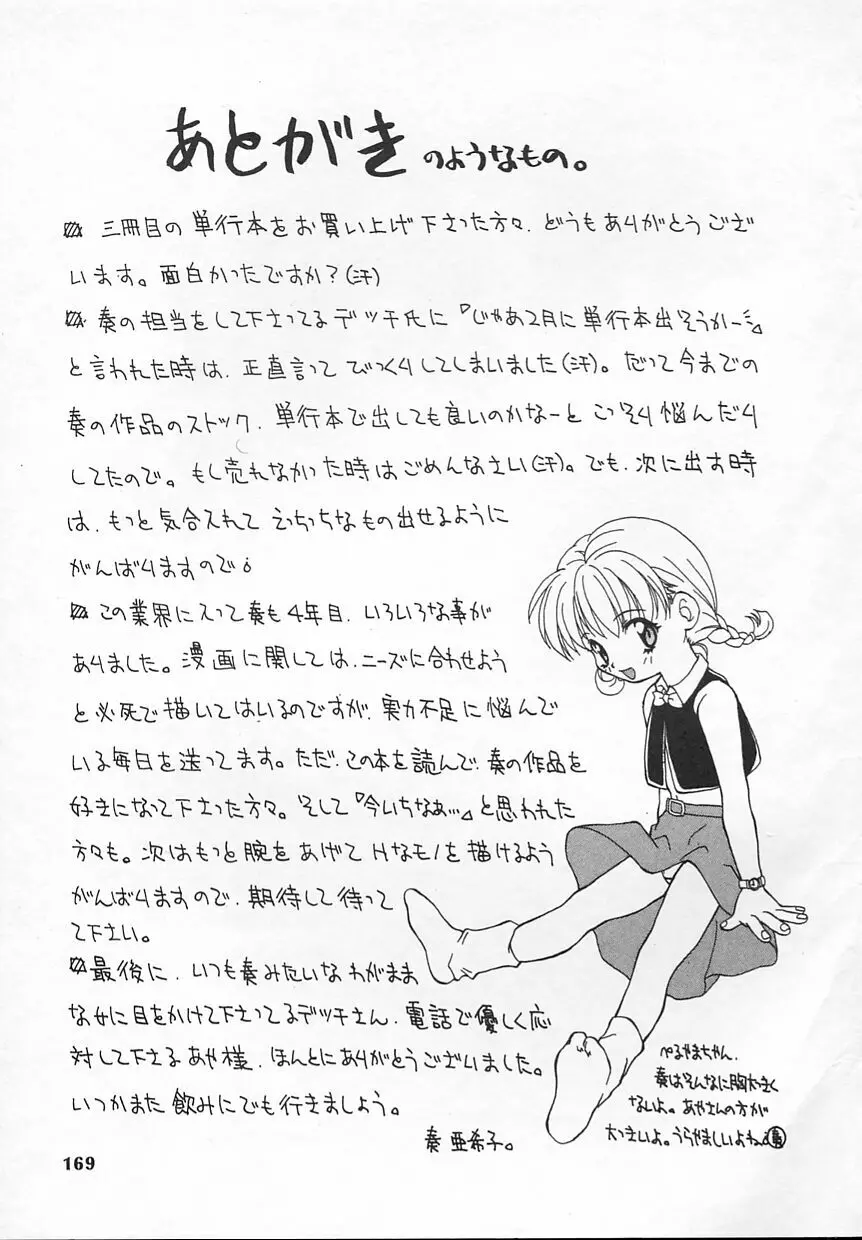 あとがきのようなもの。
三冊目の単行本をお買い上げ下さった方々、どうもありがとうござ
います。面白かったですか？(汗)
奏の担当をして下さってるデッチ氏に『じゃあ2月に単行本出そうかー』
と言われた時は、正直言ってびっくりしてしまいました(汗)。だって今までの
奏の作品のストック、単行本で出しても良いのかなーとこっそり悩んだり
してたので。もし売れなかった時はごめんなさい(汗)。でも、次に出す時
は、もっと気合入れてえっちっちなもの出せるように
がんばりますので。
この業界に入って奏も4年目、いろいろな事が
ありました。漫画に関しては、ニーズに合わせよう
と必死で描いてはいるのですが、実力不足に悩んで
いる毎日を送ってます。ただ、この本を読んで、奏の作品を
好きになって下さった方々。そして『今いちなぁ…』と思われた
方々も。次はもっと腕をあげてHなモノを描けるよう
がんばりますので、期待して待って
て下さい。
最後に、いつも奏みたいなわがまま
な女に目をかけて下さってるデッチさん、電話で優しく応
対して下さるあや様、ほんとにありがとうございました。
いつかまた飲みにでも行きましょう。
奏 亜希子。
ぺるやまちゃん、
奏はそんなに胸大きく
ないよ。あやさんの方が
大っきいよ。うらやましいよねぇ
169